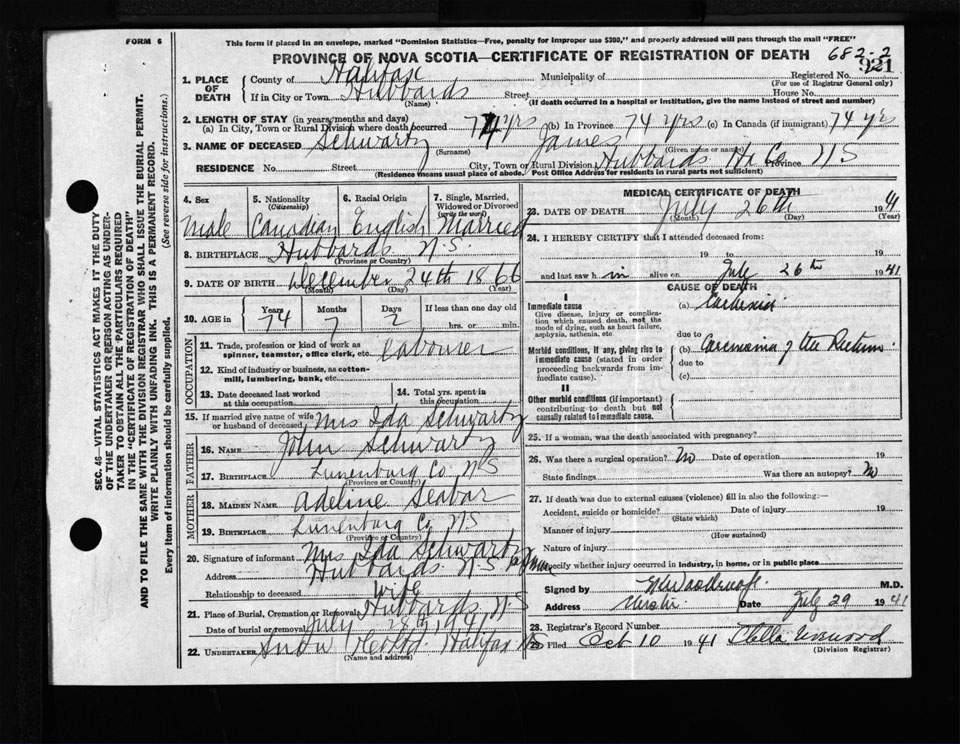 FORM 6
This form if placed in an envelope, marked "Dominion Statistics—Free, penalty for improper use $300," and properly addressed will pass through the mail "FREE"
PROVINCE OF NOVA SCOTIA—CERTIFICATE OF REGISTRATION OF DEATH 682-2
921
1. PLACE OF DEATH
County of Halifax Municipality of Registered No.
(For use of Registrar General only)
If in City or Town Hubbards Street House No.
(Name) (If death occurred in a hospital or institution, give the name instead of street and number)
2. LENGTH OF STAY (in years, months and days)
(a) In City, Town or Rural Division where death occurred 74 yrs (b) In Province 74 yrs (c) In Canada (if immigrant) 74 yrs
3. NAME OF DECEASED Schwartz James
(Surname) (Given name or names)
RESIDENCE No. Street City, Town or Rural Division Hubbards Hx Co Province N S
(Residence means usual place of abode. Post Office Address for residents in rural parts not sufficient)
4. Sex 5. Nationality (Citizenship) 6. Racial Origin 7. Single, Married, Widowed or Divorced (write the word)
Male Canadian English Married
8. BIRTHPLACE Hubbards N.S.
(Province or Country)
9. DATE OF BIRTH December 24th 1866
(Month) (Day) (Year)
10. AGE in Years Months Days If less than one day old
74 7 2 hrs. or min.
OCCUPATION
11. Trade, profession or kind of work as spinner, teamster, office clerk, etc. Labourer
12. Kind of industry or business, as cotton-mill, lumbering, bank, etc.
13. Date deceased last worked at this occupation
14. Total yrs. spent in this occupation
15. If married give name of wife or husband of deceased Mrs Ida Schwartz
FATHER
16. NAME John Schwartz
17. BIRTHPLACE Lunenburg Co N S
(Province or Country)
MOTHER
18. MAIDEN NAME Adeline Seabar
19. BIRTHPLACE Lunenburg Co N S
(Province or Country)
20. Signature of informant Mrs Ida Schwartz
Address Hubbards N S
Relationship to deceased wife
21. Place of Burial, Cremation or Removal Hubbards N S
Date of burial or removal July 28th, 1941
22. UNDERTAKER Snow & Co Ltd. Halifax N S
(Name and address)
MEDICAL CERTIFICATE OF DEATH
23. DATE OF DEATH July 26th 1941
(Month) (Day) (Year)
24. I HEREBY CERTIFY that I attended deceased from:
19 to 19
and last saw him alive on July 26th 1941
CAUSE OF DEATH
I
Immediate cause (a) Cachexia
Give disease, injury or complication which caused death, not the mode of dying, such as heart failure, asphyxia, asthenia, etc
due to
Morbid conditions, if any, giving rise to immediate cause (stated in order proceeding backwards from immediate cause).
(b) Carcinoma of the Rectum
due to
(c)
II
Other morbid conditions (if important) contributing to death but not causally related to immediate cause.
25. If a woman, was the death associated with pregnancy?
26. Was there a surgical operation? No Date of operation 19
State findings Was there an autopsy? No
27. If death was due to external causes (violence) fill in also the following:—
Accident, suicide or homicide? Date of injury 19
(State which)
Manner of injury
(How sustained)
Nature of injury
Specify whether injury occurred in industry, in home, or in public place
Signed by M.D.
Address Date July 29 1941
28. Registrar's Record Number
29. Filed Oct 10 1941 Stella
(Division Registrar)
SEC. 46—VITAL STATISTICS ACT MAKES IT THE DUTY
OF THE UNDERTAKER OR PERSON ACTING AS UNDER-
TAKER TO OBTAIN ALL THE PARTICULARS REQUIRED
IN THE "CERTIFICATE OF REGISTRATION OF DEATH"
AND TO FILE THE SAME WITH THE DIVISION REGISTRAR WHO SHALL ISSUE THE BURIAL PERMIT.
WRITE PLAINLY WITH UNFADING INK. THIS IS A PERMANENT RECORD.
Every item of information should be carefully supplied. (See reverse side for instructions.)